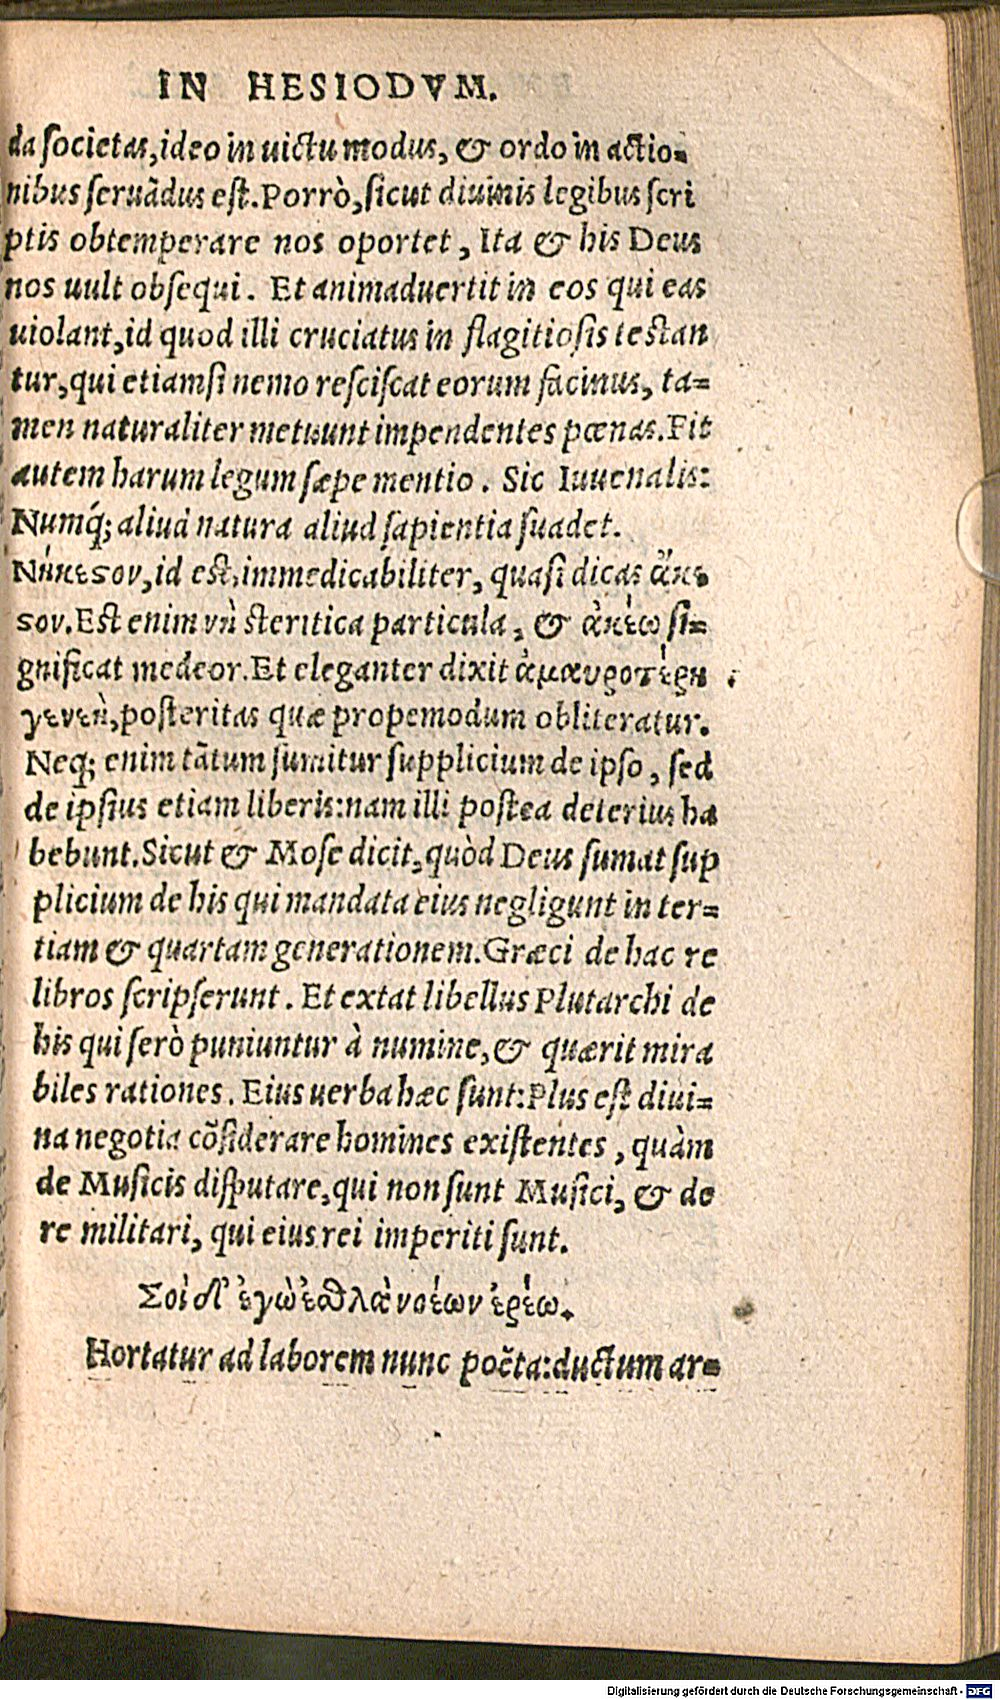 IN HESIODVM.
da societas, ideo in uictu modus, & ordo in actio-
nibus seruãdus est. Porrò, sicut diuinis legibus scri
ptis obtemperare nos oportet, Ita & his Deus
nos uult obsequi. Et animaduertit in eos qui eas
uiolant, id quod illi cruciatus in flagitiosis testan
tur, qui etiamsi nemo resciscat eorum facinus, ta=
men naturaliter metuunt impendentes pœnas. Fit
autem harum legum sæpe mentio. Sic Iuuenalis:
Numq́; aliud natura aliud sapientia suadet.
Νήκεςον, id est, immedicabiliter, quasi dicas ἄκε-
ςον. Est enim νὴ steritica particula, & ἀκέω si=
gnificat medeor. Et eleganter dixit ἀμαυροτέρη
γενεὴ, posteritas quæ propemodum obliteratur.
Neq; enim tãtum sumitur supplicium de ipso, sed
de ipsius etiam liberis: nam illi postea deterius ha
bebunt. Sicut & Mose dicit, quòd Deus sumat sup
plicium de his qui mandata eius negligunt in ter=
tiam & quartam generationem. Græci de hac re
libros scripserunt. Et extat libellus Plutarchi de
his qui serò puniuntur à numine, & quærit mira
biles rationes. Eius uerba hæc sunt: Plus est diui=
na negotia cõsiderare homines existentes, quàm
de Musicis disputare, qui non sunt Musici, & de
re militari, qui eius rei imperiti sunt.
Σοὶ δ' ἐγὼ ἐσθλὰ νοέων ἐρέω.
Hortatur ad laborem nunc poẽta: ductum ar-
Digitalisierung gefördert durch die Deutsche Forschungsgemeinschaft - DFG